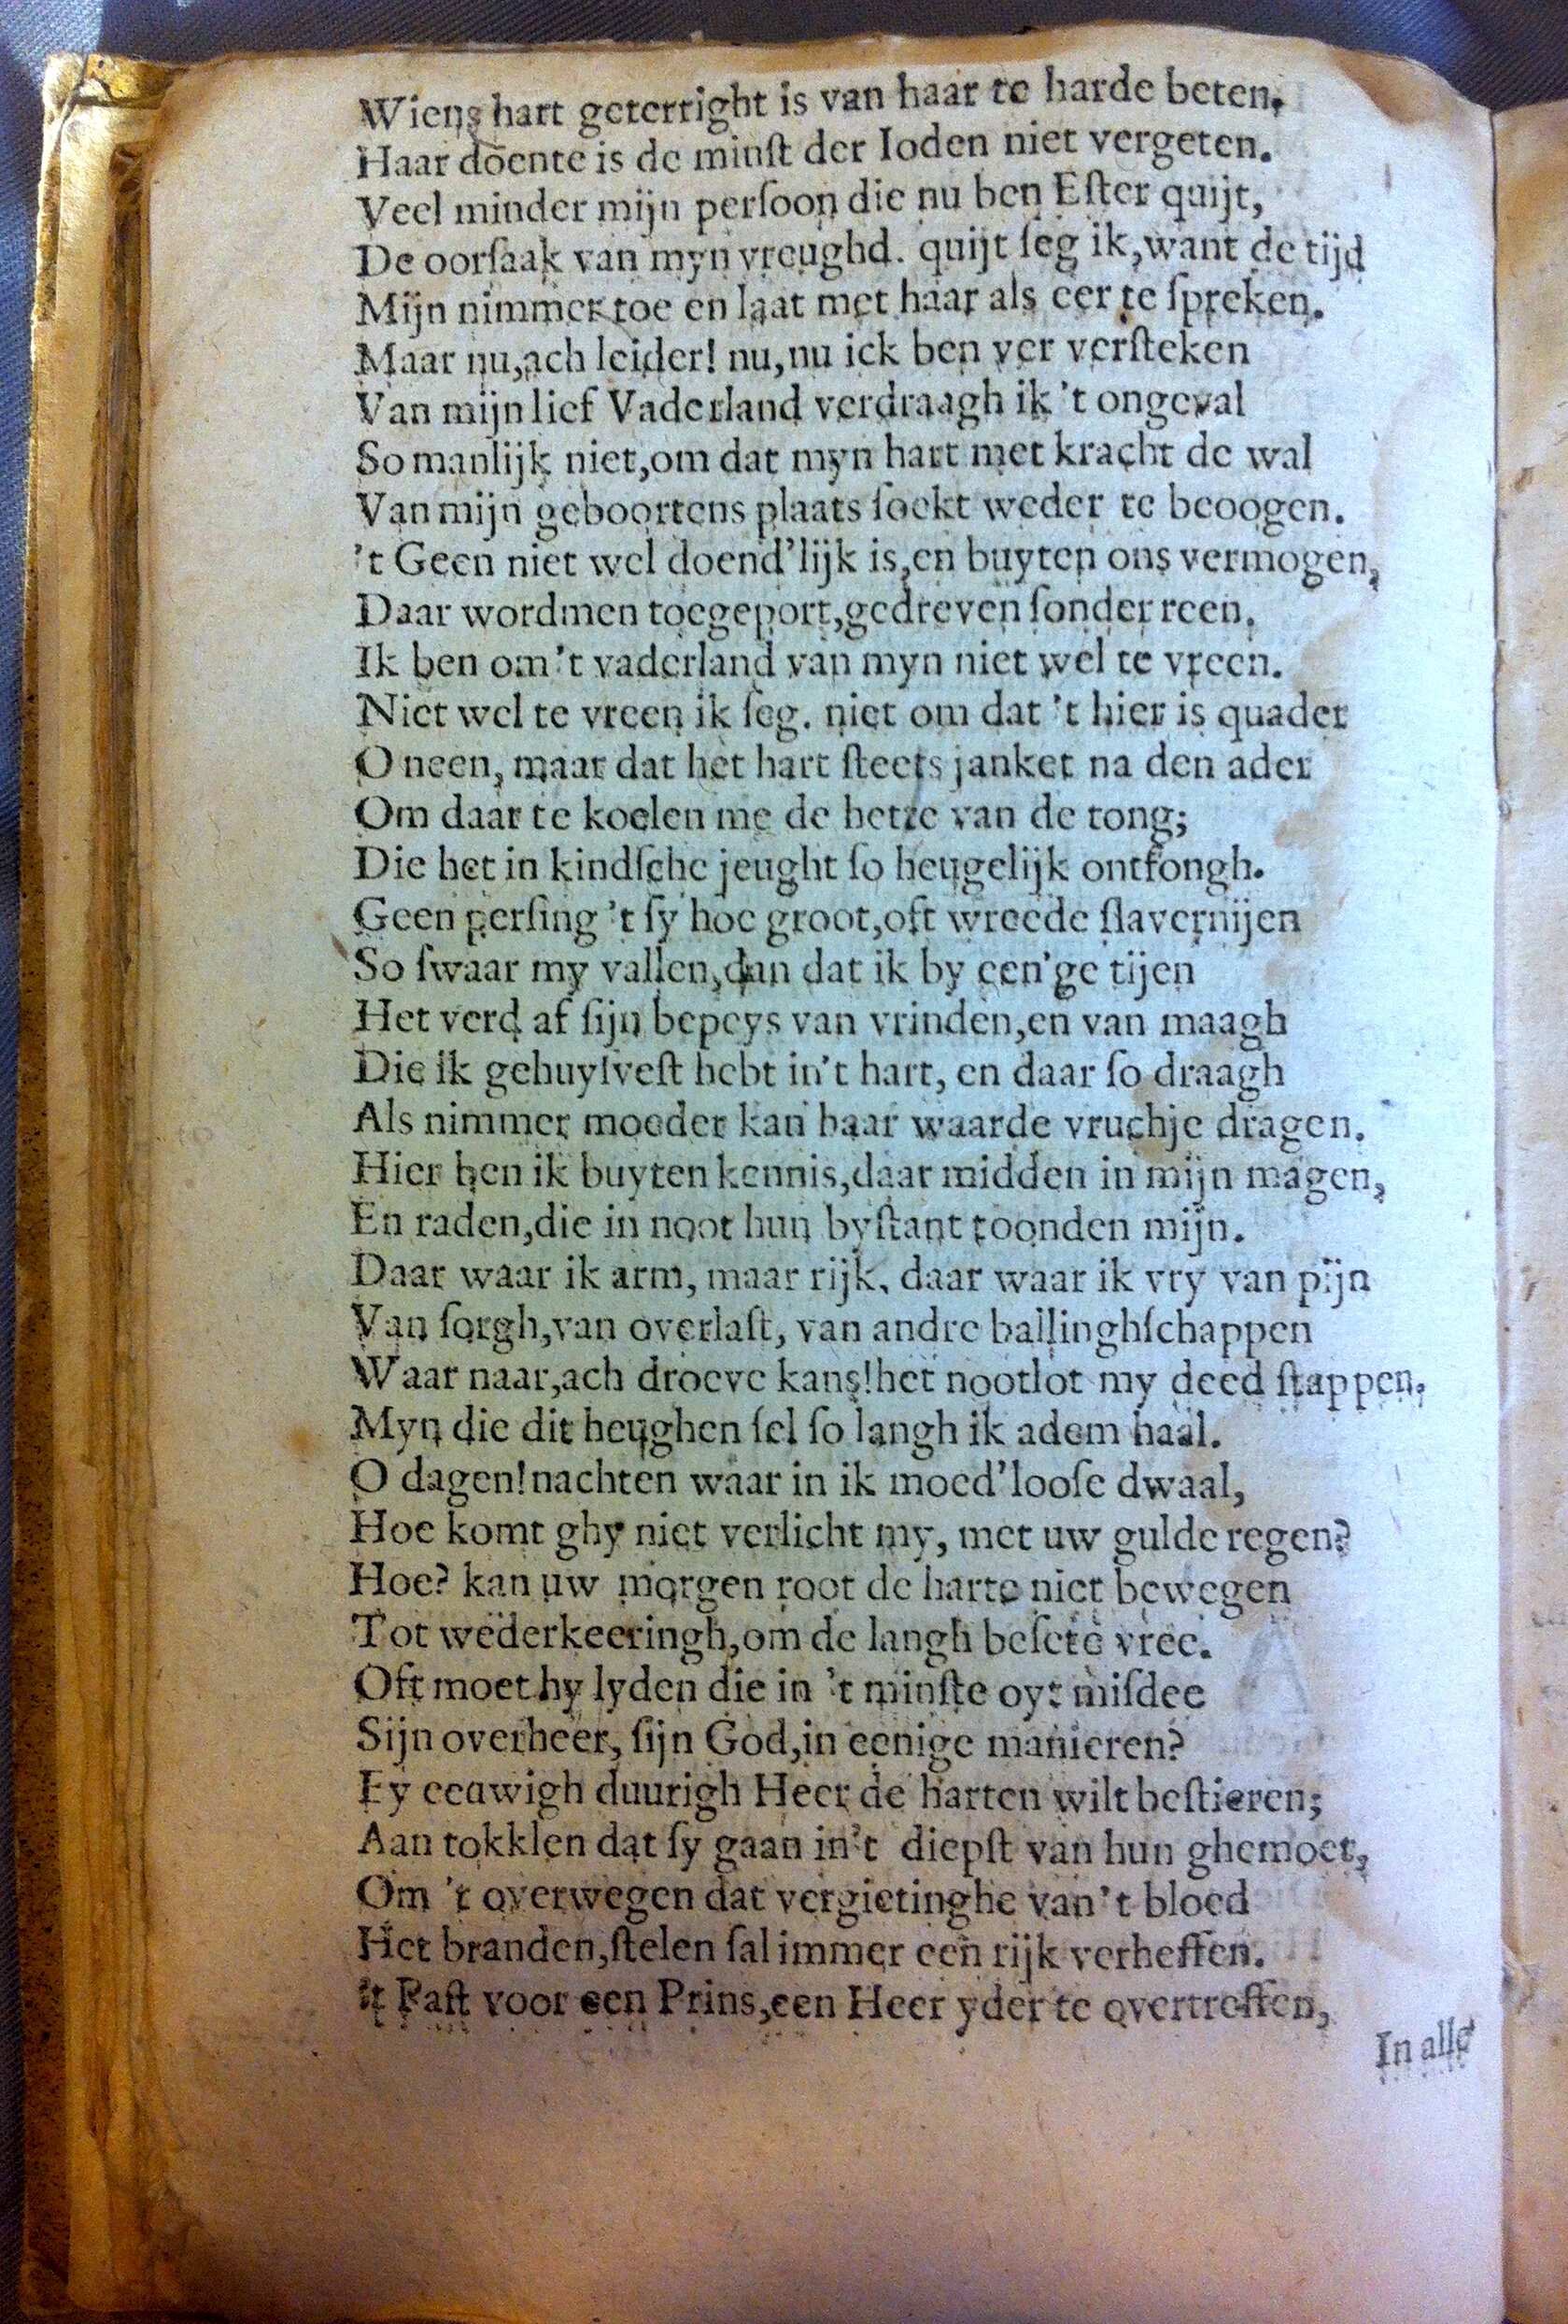 Wiens hart geterright is van haar te harde beten,
Haar doente is de minſt der Ioden niet vergeten.
Veel minder mijn perſoon die nu ben Eſter quijt,
De oorſaak van myn vreughd. quijt ſeg ik,want de tijd
Mijn nimmer toe en laat met haar als eer te ſpreken.
Maar nu,ach leider! nu,nu ick ben ver verſteken
Van mijn lief Vaderland verdraagh ik 't ongeval
So manlijk niet,om dat myn hart met kracht de wal
Van mijn geboortens plaats ſoekt weder te beoogen.
't Geen niet wel doend'lijk is,en buyten ons vermogen,
Daar wordmen toegeport,gedreven ſonder reen.
Ik ben om't vaderland van myn niet wel te vreen.
Niet wel te vreen ik ſeg. niet om dat 't hier is quader
O neen, maar dat het hart ſteets janket na den ader
Om daar te koelen me de hette van de tong;
Die het in kindſche jeught ſo heugelijk ontfongh.
Geen perſing 't ſy hoe groot,oft wreede ſlavernijen
So ſwaar my vallen,dan dat ik by een'ge tijen
Het verd af ſijn bepeys van vrinden,en van maagh
Die ik gehuyſveſt hebt in't hart, en daar ſo draagh
Als nimmer moeder kan haar waarde vruchje dragen.
Hier ben ik buyten kennis,daar midden in mijn magen,
En raden,die in noot hun byſtant toonden mijn.
Daar waar ik arm, maar rijk, daar waar ik vry van pijn
Van ſorgh,van overlaſt, van andre ballinghſchappen
Waar naar,ach droeve kans!het nootlot my deed ſtappen.
Myn die dit heughen ſel ſo langh ik adem haal.
O dagen!nachten waar in ik moed'looſe dwaal,
Hoe komt ghy niet verlicht my, met uw gulde regen?
Hoe? kan uw morgen root de harte niet bewegen
Tot wederkeeringh,om de langh beſete vree.
Oft moet hy lyden die in 't minſte oyt miſdee
Sijn overheer, ſijn God,in eenige manieren?
Ey eeuwigh duurigh Heer de harten wilt beſtieren;
Aan tokklen dat ſy gaan in't diepſt van hun ghemoet,
Om 't overwegen dat vergietinghe van't bloed
Het branden,ſtelen ſal immer een rijk verheffen.
't Paſt voor een Prins,een Heer yder te overtreffen,
In alle